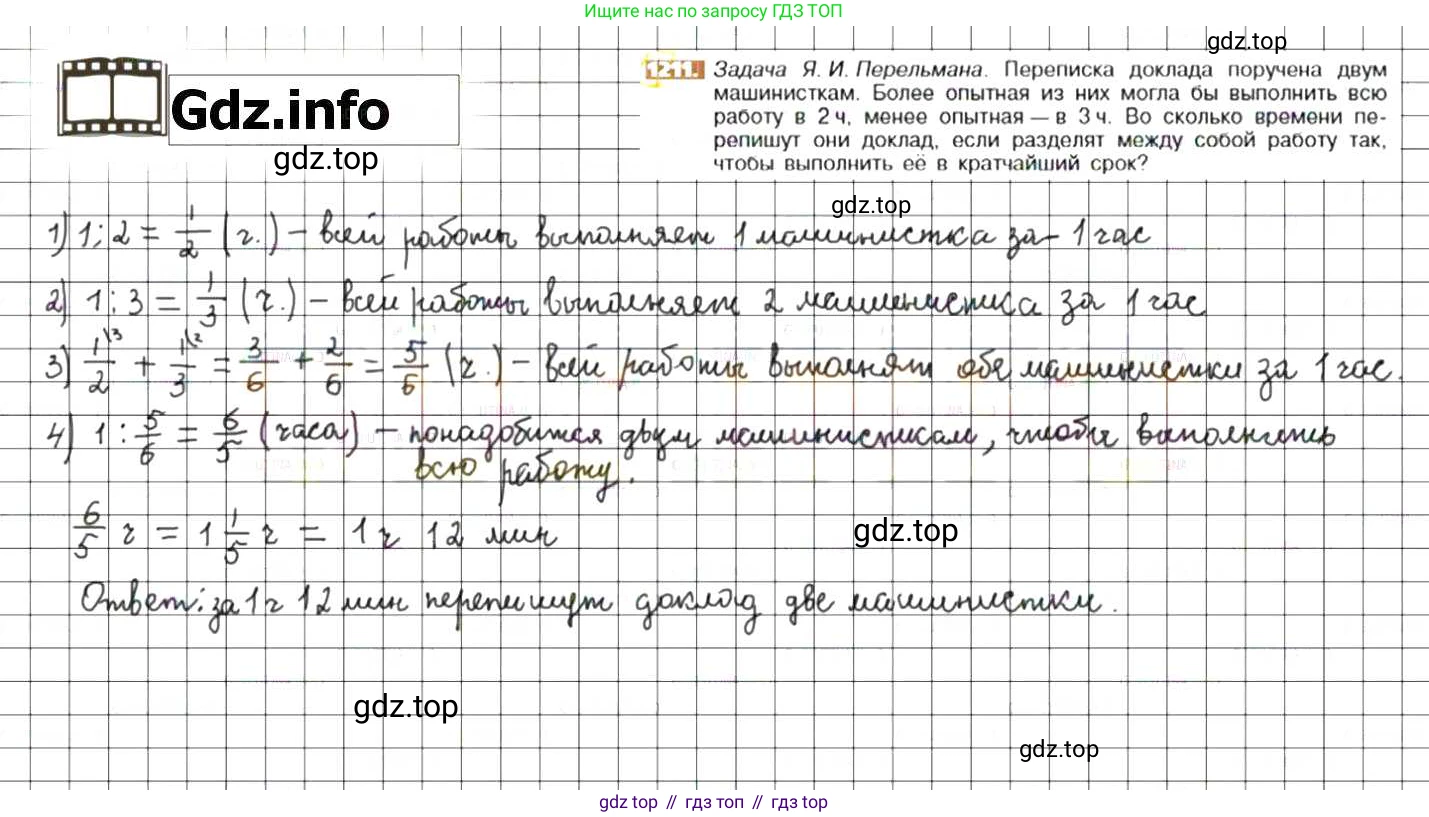 Ищите нас по запросу ГДЗ ТОП
gdz.top
Gdz.info
gdz.top
1211. Задача Я. И. Перельмана. Переписка доклада поручена двум
машинисткам. Более опытная из них могла бы выполнить всю
работу в 2 ч, менее опытная — в 3 ч. Во сколько времени пе-
репишут они доклад, если разделят между собой работу так,
чтобы выполнить её в кратчайший срок?
gdz.top
1) 1 : 2 = 1/2 (ч.) – всей работы выполняет 1 машинистка за – 1 час
2) 1 : 3 = 1/3 (ч.) – всей работы выполняет 2 машинистка за 1 час
3) 1\3/2 + 1\2/3 = 3/6 + 2/6 = 5/6 (ч.) – всей работы выполнят обе машинистки за 1 час.
4) 1 : 5/6 = 6/5 (часа) – понадобится двум машинисткам, чтобы выполнить
всю работу.
6/5 ч = 1 1/5 ч = 1 ч 12 мин
gdz.top
Ответ: за 1 ч 12 мин перепишут доклад две машинистки.
gdz.top
gdz.top
gdz top // гдз топ // gdz top